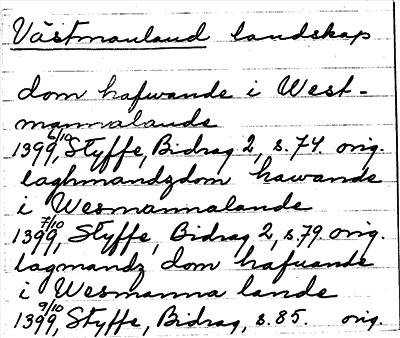 Västmanland landskap
dom hafwande i West-
mannalande
1399 6/10, Styffe, Bidrag 2, s. 74. orig.
laghmandzdom hawande
i Wesmannalande
1399 7/10, Styffe, Bidrag 2, s. 79 orig.
lagmandz dom hafuande
i Wesmanna lande
1399 9/10, Styffe, Bidrag, s. 85. orig.